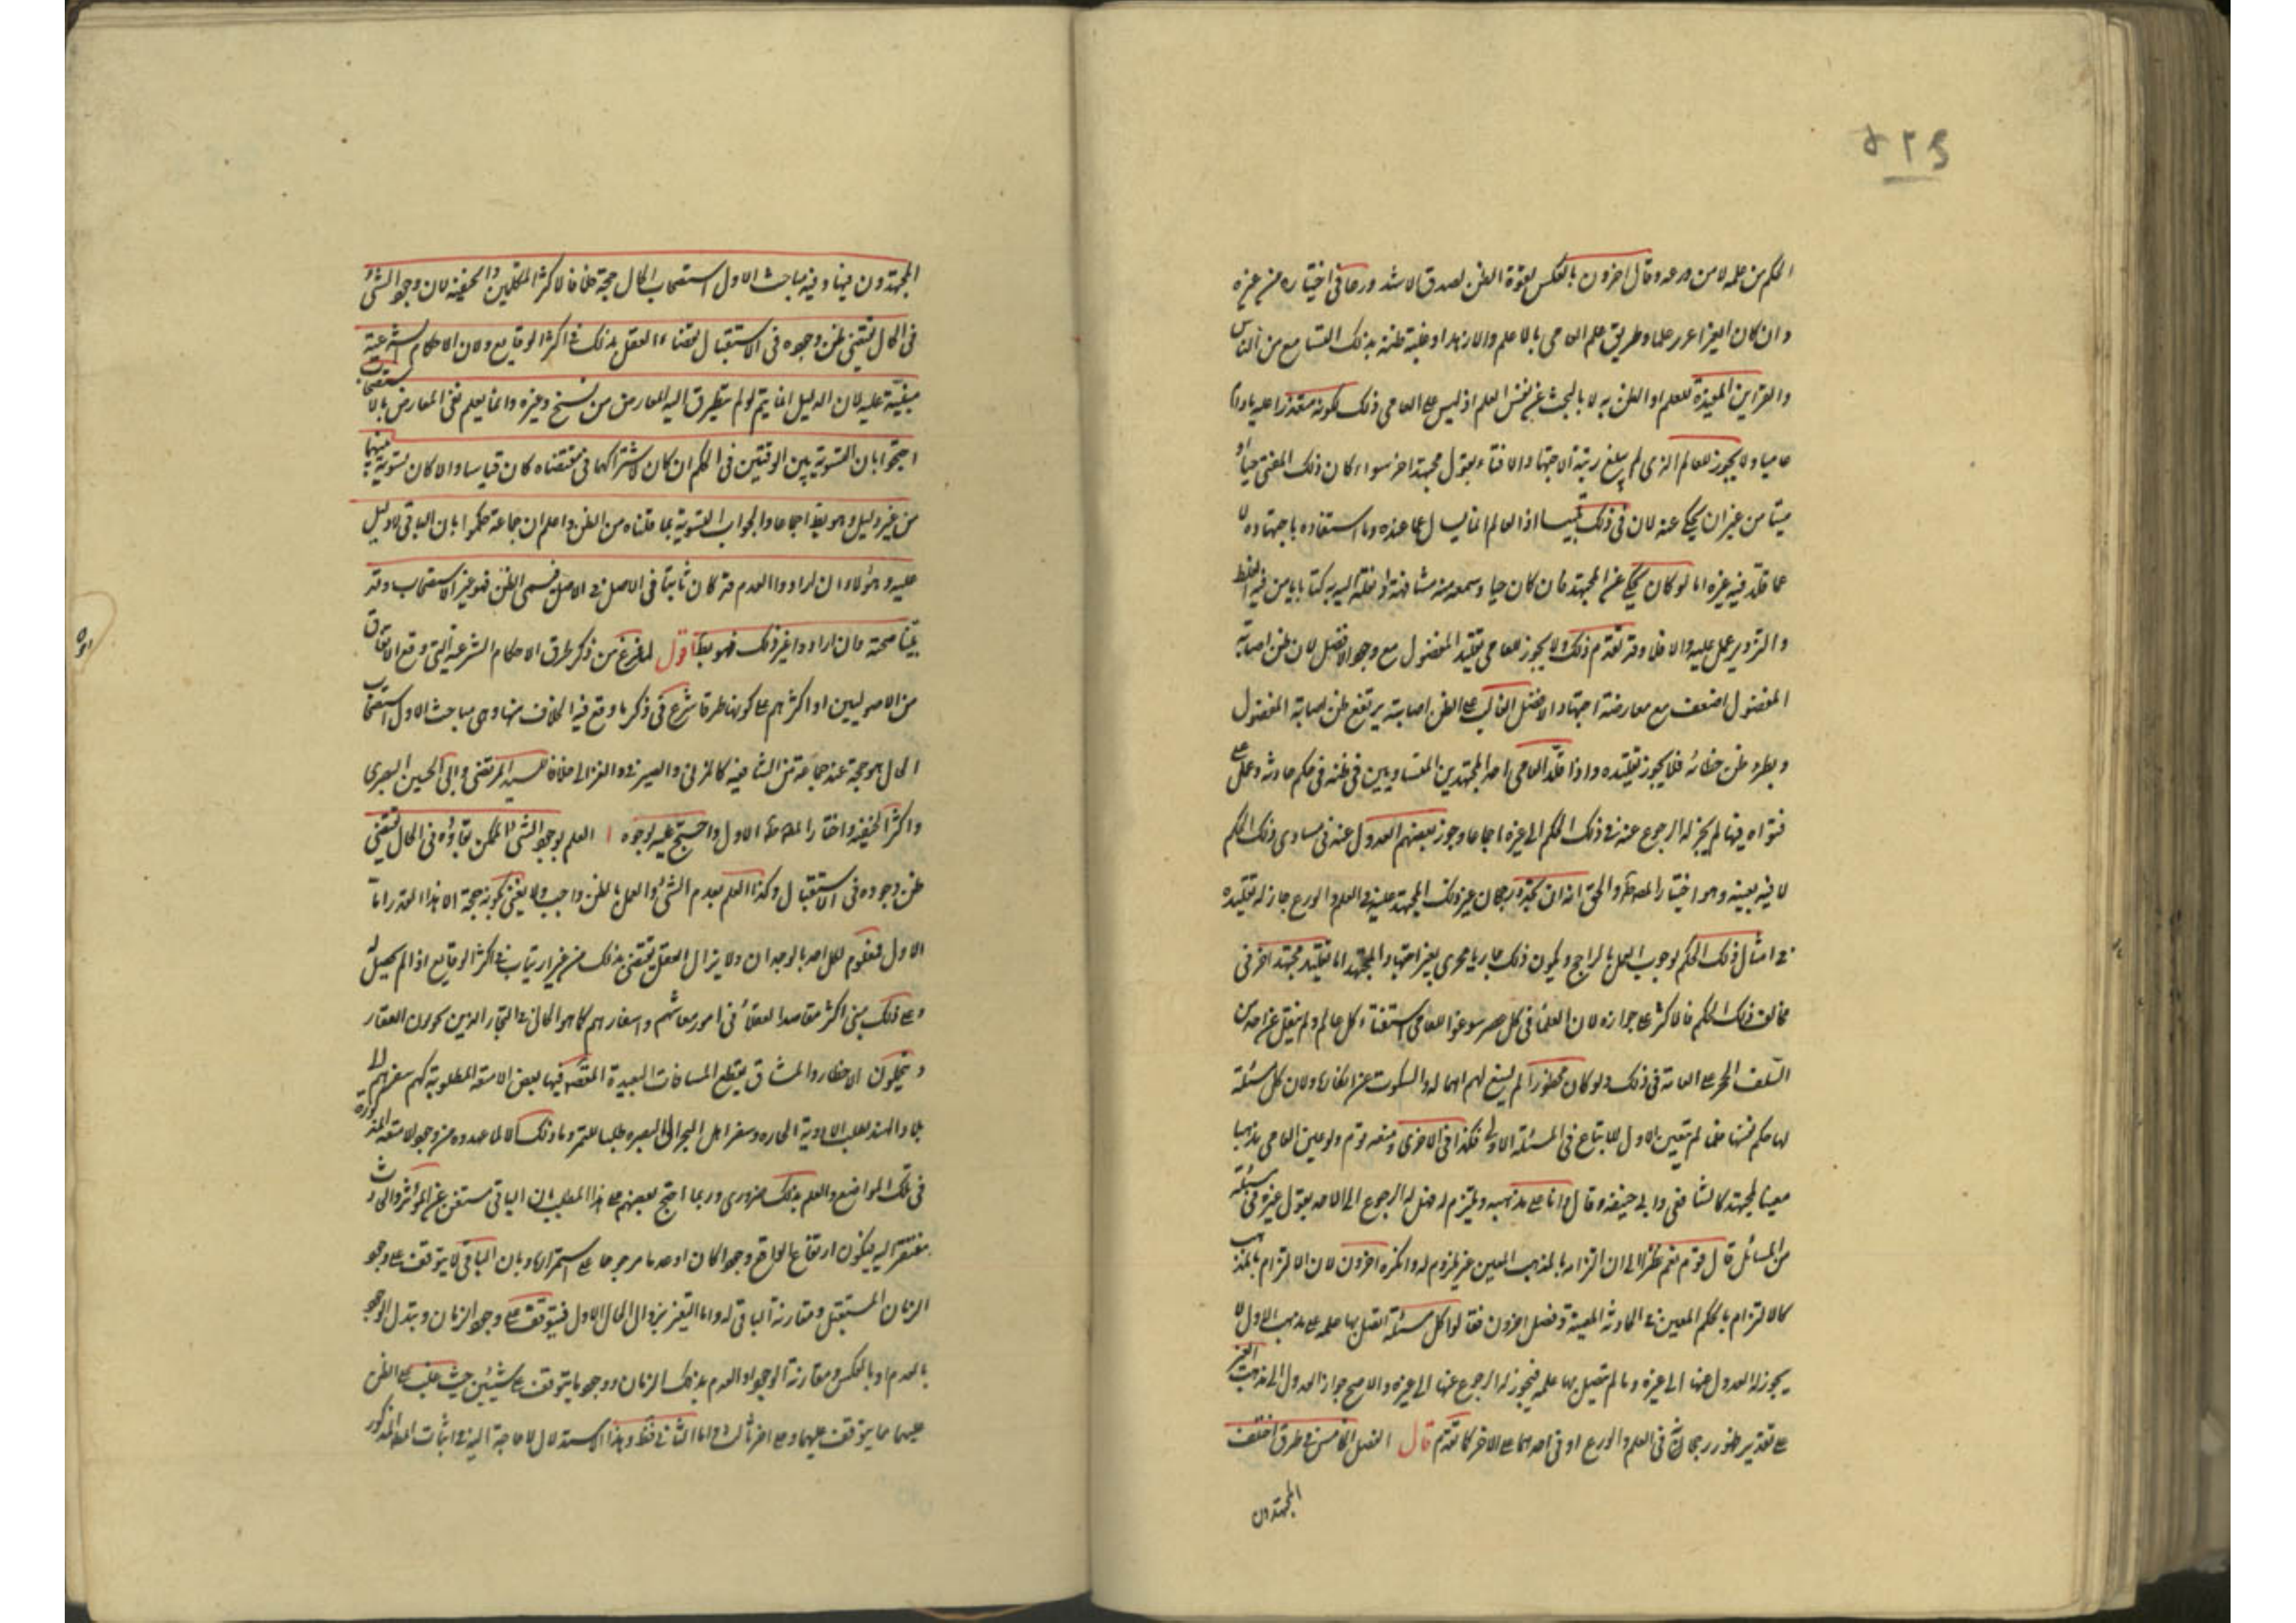 ٥٢٤
الحكم من علمه لا من ورعه وقال اخرون بالعكس لقوة الظن لصدق الاشد ورعا فى اختياره من غيره
وان كان الغير اغزر علما وطريق علم العامى بالاعلم والازهد او غلبة ظنه بذلك التسامع من الناس
والقراين المفيدة للعلم او الظن به لا بالبحث عن نفس العلم اذ ليس على العامى ذلك لكونه متعذرا عليه مادام
عاميا ولا يجوز للعالم الذى لم يبلغ رتبة الاجتهاد الافتاء بقول مجتهد اخر سواء كان ذلك المفتى حيا او
ميتا من غير ان يحكى عنه لان فى ذلك تلبيسا اذ العالم انما يسأل عما عنده وما استفاده باجتهاده لا
عما قلد فيه غيره اما لو كان يحكى عن المجتهد فان كان حيا وسمعه منه مشافهة او نقله اليه به كتابا يامن فيه الغلط
والتزوير عمل عليه والا فلا وقد تقدم ذلك ولا يجوز للعامى تقليد المفضول مع وجود الافضل لان ظن اصابة
المفضول اضعف مع معارضة اجتهاد الافضل الغالب على الظن اصابته يرتفع ظن اصابة المفضول
ويطرد ظن خطائه فلا يجوز تقليده واذا قلد العامى احد المجتهدين المتساويين فى ظنه فى حكم حادثه وعمل على
فتواه فيها لم يجز له الرجوع عنه فى ذلك الحكم الى غيره اجماعا وجوز بعضهم العدول عنه فى مساوى ذلك الحكم
لا فيه بعينه وهو اختيار المصنف والحق انه ان تجدد رجحان غير ذلك المجتهد عليه فى العلم والورع جاز له تقليده
فى امثال ذلك الحكم لوجوب العمل بالراجح ويكون ذلك جاريا مجرى تغير اجتهاد المجتهد اما تقليد مجتهد اخر فى
مخالف ذلك الحكم فالاكثر على جوازه لان العلماء فى كل عصر سوغوا للعامى استفتاء كل عالم ولم ينقل عن احد من
السلف الحجر على العامة فى ذلك ولو كان محظورا لم يسغ لهم اهماله والسكوت عن انكاره ولان كل مسئلة
لها حكم نفسها فلما لم يتعين الاول للاتباع فى المسئلة الاولى فكذا فى الاخرى ومنعه قوم ولو عين العامى مذهبا
معينا لمجتهد كالشافعى وابى حنيفه وقال انا على مذهبه وملتزم له فهل له الرجوع الى الاخذ بقول غيره فى مسئلة
من المسائل قال قوم نعم نظرا الى ان التزامه بالمذهب المعين غير ملزوم له وانكره اخرون لان الالتزام بالمذهب
كالالتزام بالحكم المعين فى الحادثه المعينة وفصل اخرون فقالوا كل مسئلة اتصل بها عمله على مذهب الاول لا
يجوز له العدول عنها الى غيره وما لم يتصل بها عمله فيجوز له الرجوع عنها الى غيره والاصح جواز العدول الى مذهب الغير
على تقدير ظهور رجحانه فى العلم والورع او فى احدهما على الاخر كما تقدم قال الفصل الخامس فى طرق اختلف
المجتهدون
المجتهدون فيها وفيه مباحث الاول استصحاب الحال حجة خلافا لاكثر المتكلمين والحنفيه لان وجود الشئ
فى الحال يقتضى ظن وجوده فى الاستقبال لقضاء العقل بذلك فى اكثر الوقايع ولان الاحكام الشرعية
مبنية عليه لان الدليل انما يتم لو لم يتطرق اليه المعارض من نسخ وغيره وانما يعلم نفى المعارض بالاستصحاب
احتجوا بان التسوية بين الوقتين فى الحكم ان كان لاشتراكهما فى مقتضاه كان قياسا والا كان تسوية بينهما
من غير دليل وهو بط اجماعا والجواب التسوية بما قلناه من الظن واعلم ان جماعة حكموا بان النافى لا دليل
عليه وهؤلاء ان ارادوا العدم قد كان ثابتا فى الاصل فى الاصل فسمى الظن فهو عين الاستصحاب وقد
بينا صحته وان ارادوا غير ذلك فهو بط اقول لما فرغ من ذكر طرق الاحكام الشرعية التى وقع الاتفاق
من الاصوليين او اكثرهم على كونها طرقا شرع فى ذكر ما وقع فيه الخلاف منها وهى مباحث الاول استصحاب
الحال هو حجة عند جماعة من الشافعيه كالمزنى والصيرفى والغزالى خلافا للسيد المرتضى وابى الحسين البصرى
واكثر الحنفيه واختار المصنف الاول واحتج عليه بوجوه ا العلم بوجود الشئ الممكن بقاؤه فى الحال يقتضى
ظن وجوده فى الاستقبال وكذا العلم بعدم الشئ والعمل بالظن واجب ولا يعنى بكونه حجة الا هذا القدر اما
الاول فمعلوم لكل احد بالوجدان ولا يزال العقل يقتضى بذلك من غير ارتياب فى اكثر الوقايع اذا لم يحصل له
وعلى ذلك مبنى اكثر مقاصد العقلاء فى امور معاشهم واسفارهم كما هو الحال فى التجار الذين يجوبون القفار
ويتحملون الاخطار والمشاق بقطع المسافات البعيدة المقصد فيها بعض الامتعة المطلوبة لهم كسفرهم الى
بلاد الهند لطلب الادوية الحاره وسفر اهل البحر الى البصره طلبا للتمر وما ذلك الا لما عهدوه من وجود الامتعة المذكورة
فى تلك المواضع والعلم بذلك ضرورى وربما احتج بعضهم على هذا المطلب بان الباقى مستغن عن المؤثر والحادث
مفتقر اليه فيكون ارتفاع الواقع وجودا كان او عدما مرجوحا على استمراره وبان الباقى لا يتوقف على وجود
الزمان المستقبل ومقارنة الباقى له واما التغير بزوال الحال الاول فيتوقف على وجود الزمان وتبدل الوجود
بالعدم او بالعكس ومقارنة الوجود او العدم بذلك الزمان ووجود ما يتوقف على شيئين حيث غلب على الظن
عليهما مما يتوقف عليهما وعلى اخر ثالث فى اما الثانى فقط وهذا الاستدلال لا حاجة اليه فى اثبات المط المذكور